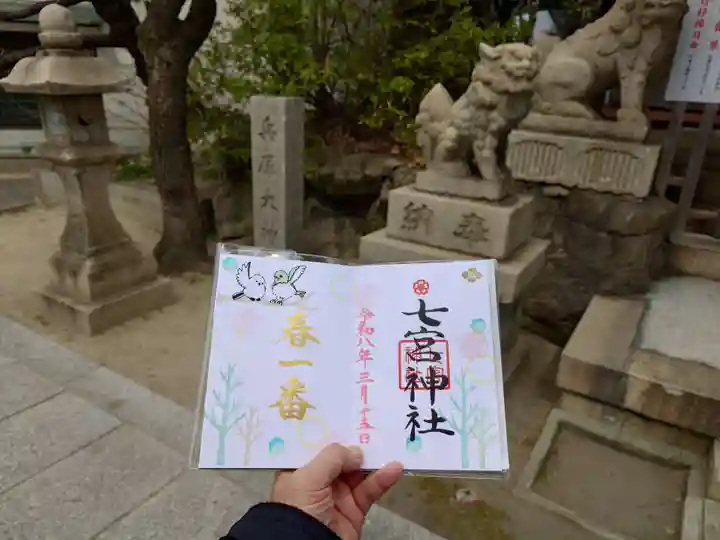 七宮神社
令和八年三月十五日
春一番
兵庫大神
奉納